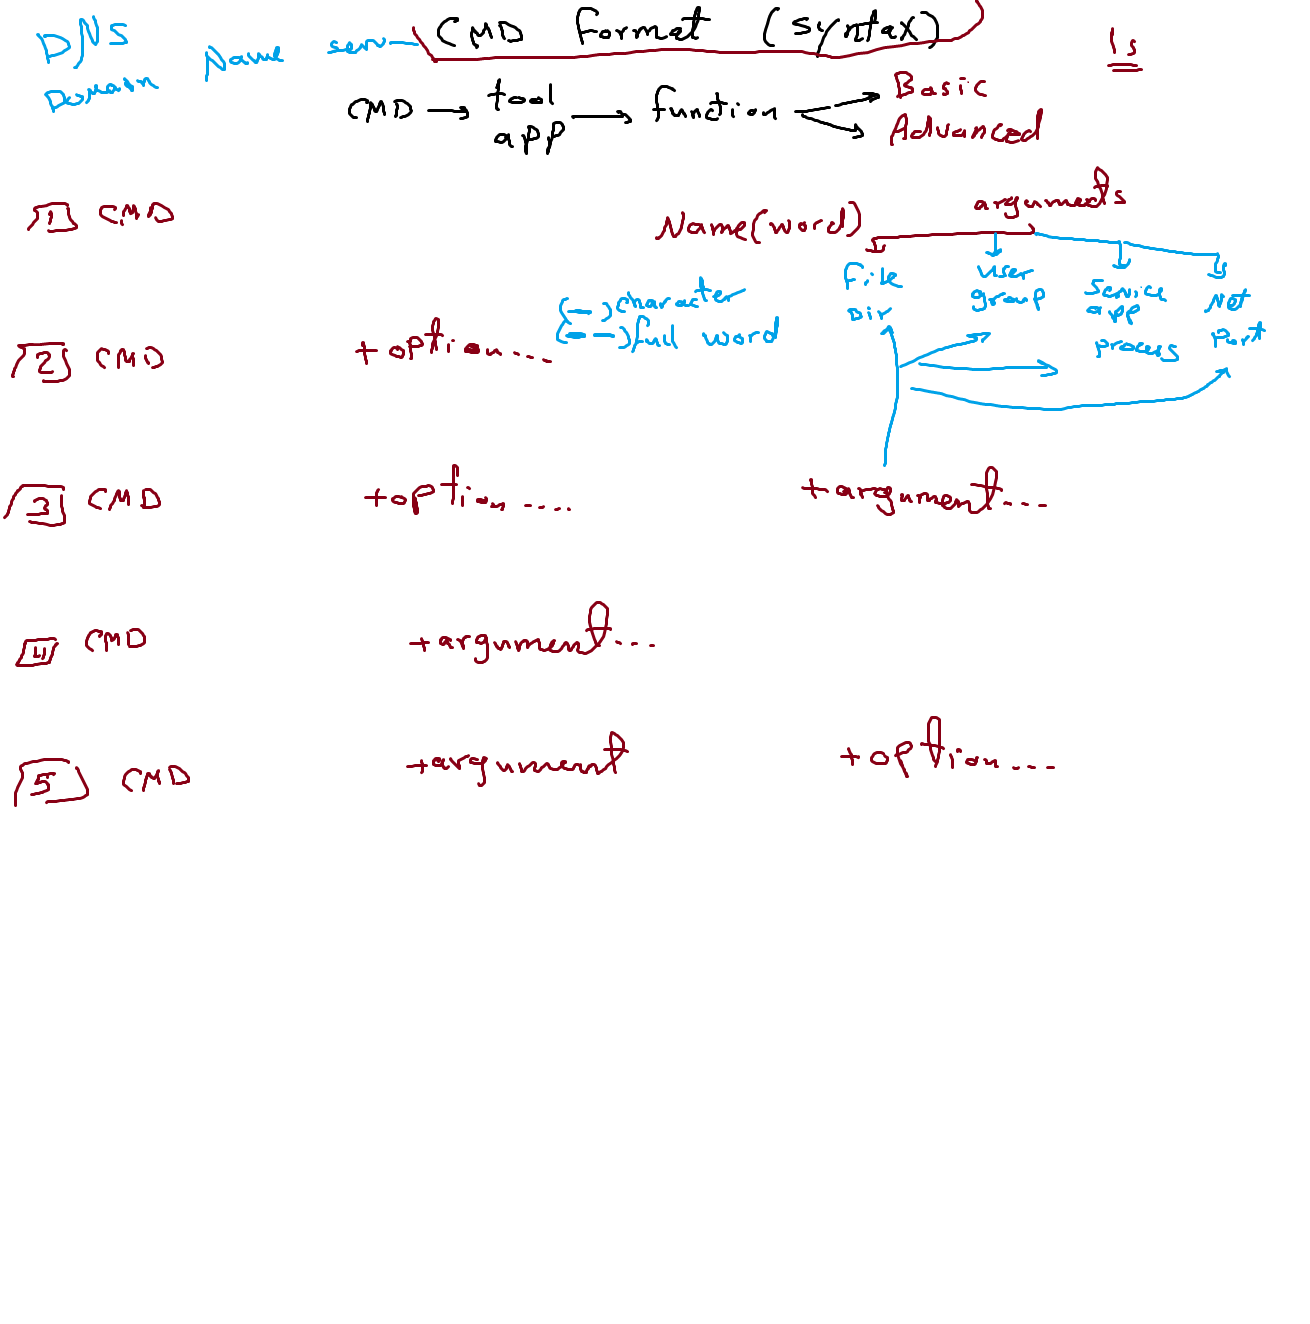 CMD Format (Syntax)
DNS
Domain Name serv
ls
CMD → tool app → function → Basic
Advanced
1 CMD
Name(word)
arguments
File Dir
user group
Service app process
Net Port
2 CMD +option...
(-)character
(--)full word
3 CMD +option.... +argument...
4 CMD +argument...
5 CMD +argument +option...